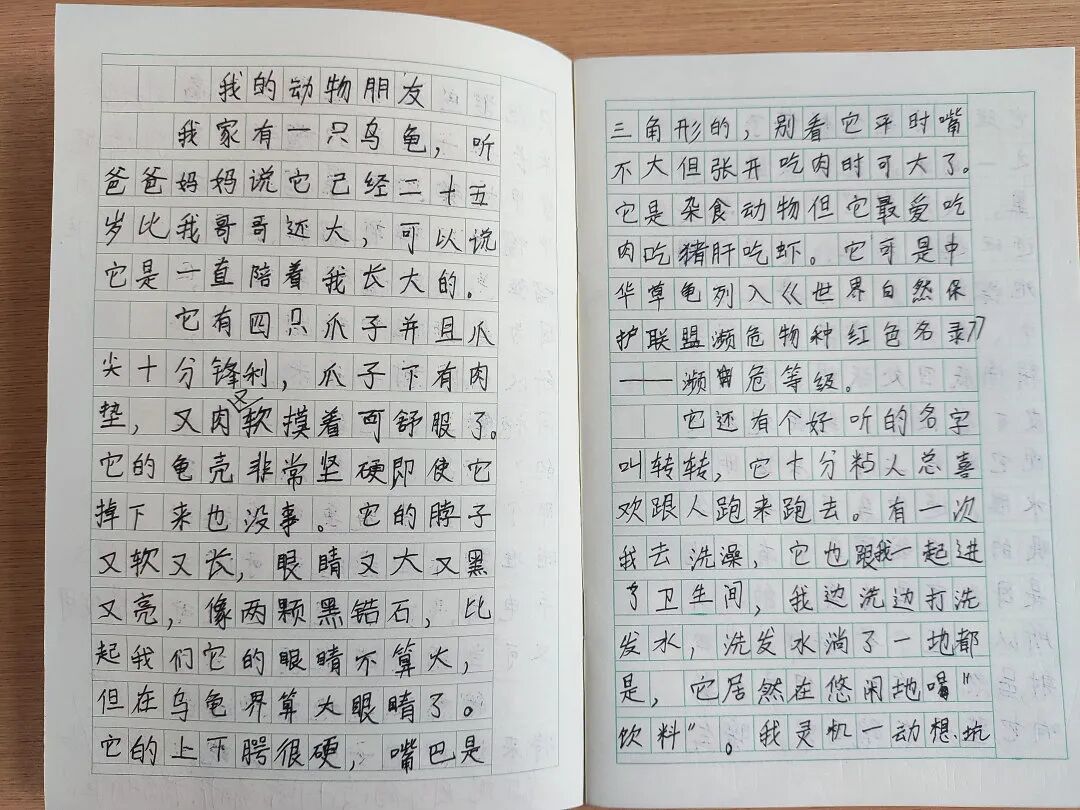 我的动物朋友
我家有一只乌龟，听
爸爸妈妈说它已经二十五
岁比我哥哥还大，可以说
它是一直陪着我长大的。
它有四只爪子并且爪
尖十分锋利，爪子下有肉
垫，又肉又软摸着可舒服了。
它的龟壳非常坚硬即使它
掉下来也没事。它的脖子
又软又长，眼睛又大又黑
又亮，像两颗黑锆石，比
起我们它的眼睛不算大，
但在乌龟界算大眼睛了。
它的上下腭很硬，嘴巴是
三角形的，别看它平时嘴
不大但张开吃肉时可大了。
它是杂食动物但它最爱吃
肉吃猪肝吃虾。它可是中
华草龟列入《世界自然保
护联盟濒危物种红色名录》
——濒危等级。
它还有个好听的名字
叫转转，它十分粘人总喜
欢跟人跑来跑去。有一次
我去洗澡，它也跟我一起进
了卫生间，我边洗边打洗
发水，洗发水淌了一地都
是，它居然在悠闲地喝“
饮料”。我灵机一动想坑